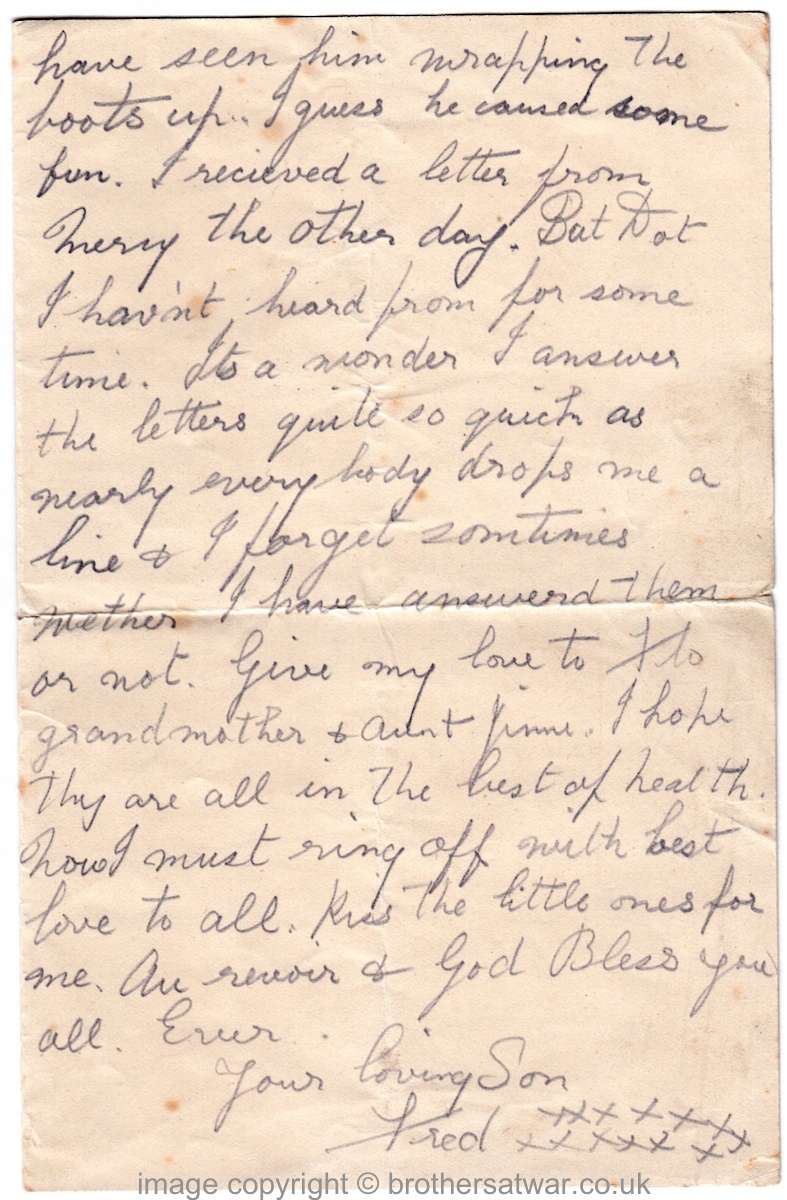 have seen him wrapping the
boots up.. I guess he caused some
fun. I recieved a letter from
Mercy the other day. But Dot
I hav'nt heard from for some
time. Its a wonder I answer
the letters quite so quick as
nearly everybody drops me a
line & I forget somtimes
wether I have answerd them
or not. Give my love to Flo
grandmother & Aunt Jinnie. I hope
thy are all in the best of health.
Now I must ring off with best
love to all. Kiss the little ones for
me. Au revoir & God Bless you
all. Ever.
Your loving Son
Fred xxxxxxx
xxxxxx
image copyright © brothersatwar.co.uk